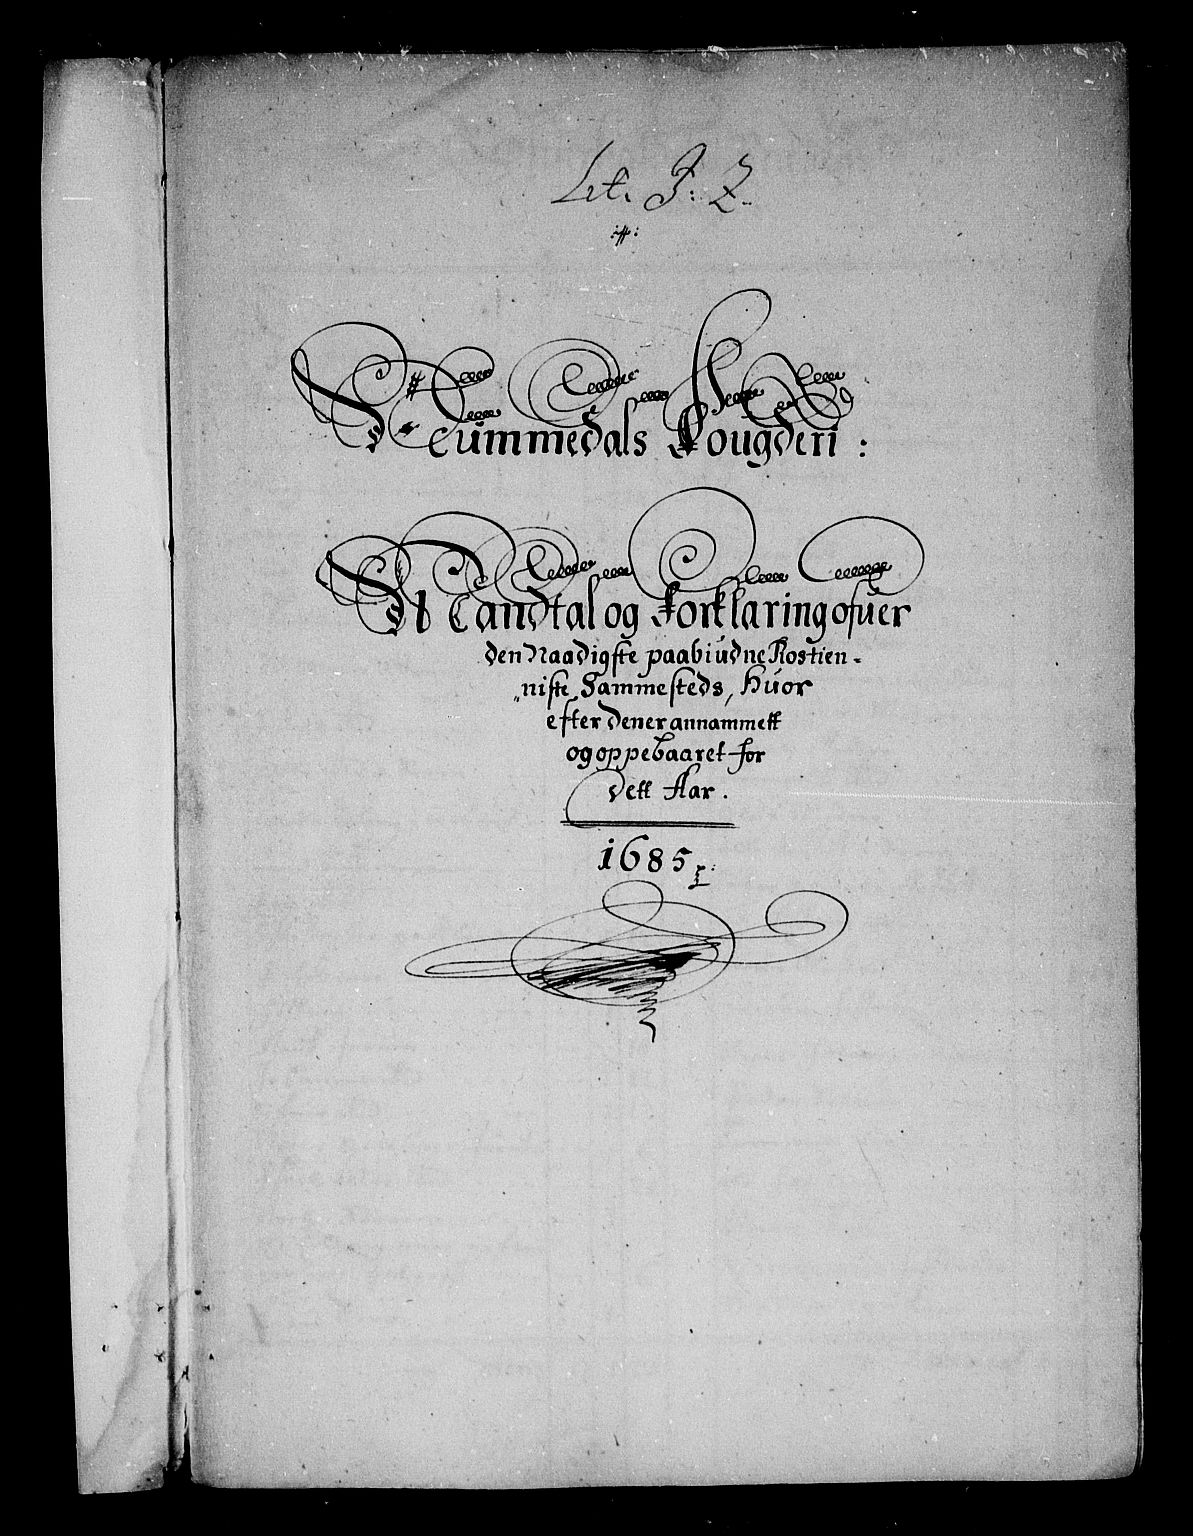 Lit. J: Z.
:#:
Nummedals Fougderi :
Mandtal og Forklaring ofuer
den Naadigste paabiudne Rostien-
niste Sammesteds, Huor
efter dener annammett
og oppebaaret for
dett Aar.
1685